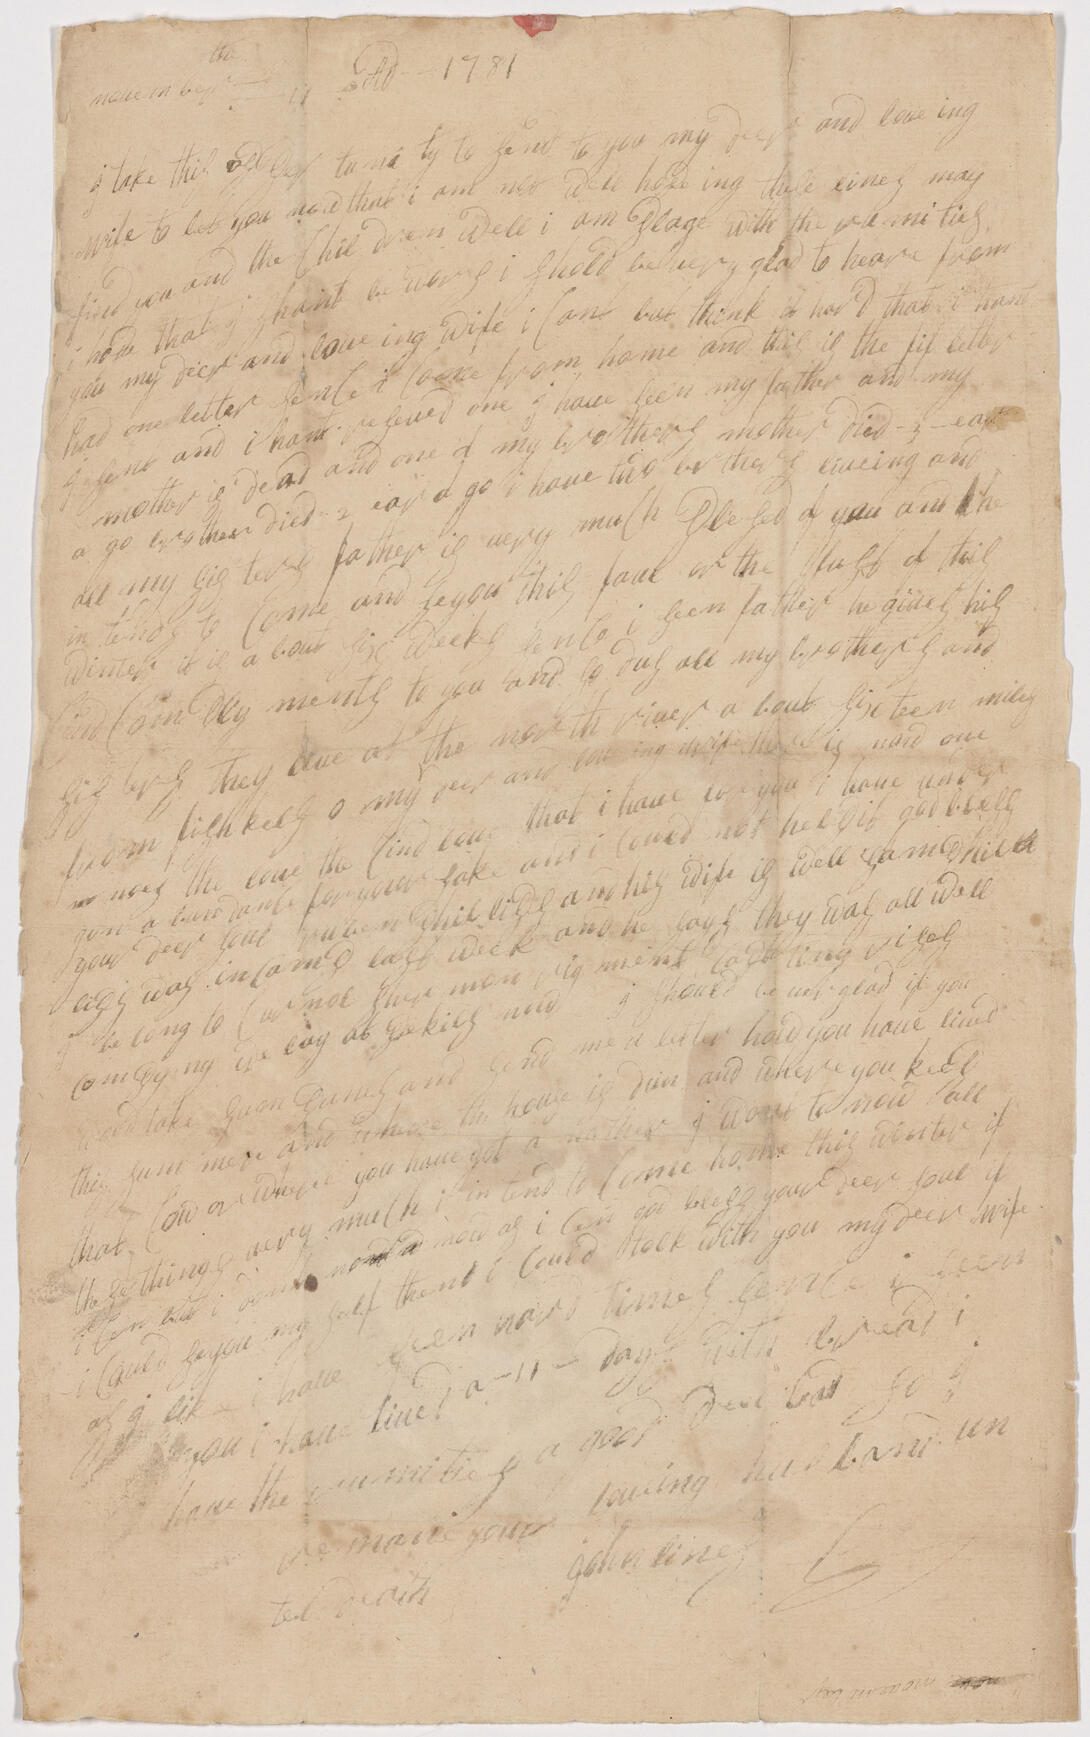 november the 11 AD 1781
i take this opper tuni ty to send to you my deer and love ing
wife to let you now that i am not well hope ing these lines may
find you and the Children well i am plage with the rumities
i hope that i shant be wors i shold be very glad to heare from
you my deer and loveing wife i Cant but think it hard that i hant
had one letter sence i Came from home and this is the fif letter
i sent and i hant reseved one i have seen my father and my
mother is dead and one of my brothers mother died 3 ear
a go brother died 2 ear a go i have two brothers liveing and
all my sisters father is very much plesed of you and he
in tends to Come and se you this faul or the fust of this
winter it is about six weeks sence i seen father he gives his
Cind Complyments to you and so dus all my brothers and
sisters they live at the north river a bout sixteen miles
from fishkeels o my deer and loveing wife there is now one
nows the love the Cind love that i have for you i have under
gon a bundants for your sake and i Could not help it god bless
your deer soul ruben phillips and his wife is well sam phil
lips was in Camp last week and he says they was all well
i belong to Curnol shurmon rigment Capting rises
Compyny we lay at peekils now i should be ver glad if you
wold take sum panes and send me a letter how you have lived
this summer and where the house is dun and where you keep
that Cow or where you have got a nother i want to now all
these things very much i intend to Come home this wenter if
i Cen but i dont now as i Cen god bless your deer soul if
i Could se you my self then i Could talk with you my deer wife
as i like i have seen hard times sence i seen
you i have lived a 11 days with bread i
have the rumities a good deal bad so i
remane your loveing husband un
tel death john lines